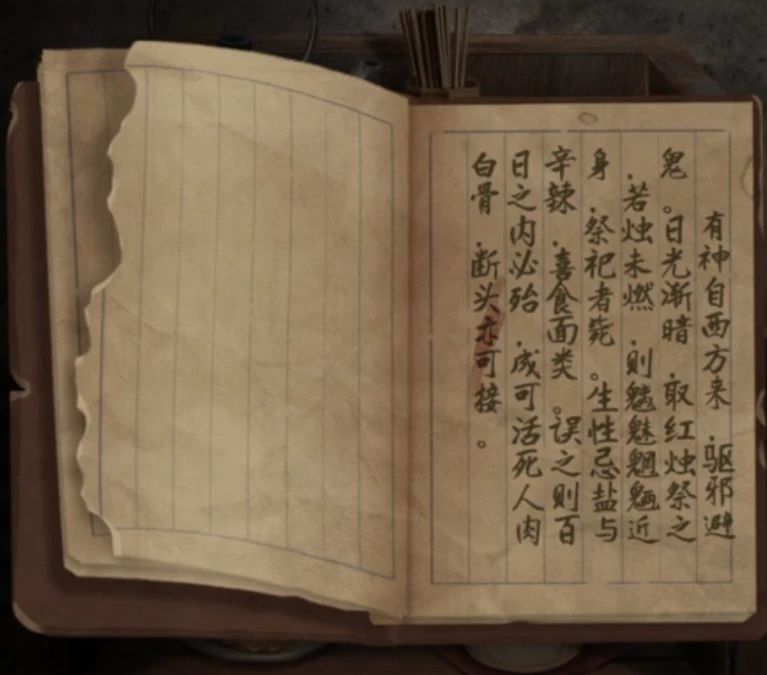 有神自西方来，驱邪避
鬼。日光渐暗，取红烛祭之
，若烛未燃，则魑魅魍魉近
身，祭祀者毙。生性忌盐与
辛辣，喜食面类。误之则百
日之内必殆，成可活死人肉
白骨，断头亦可接。